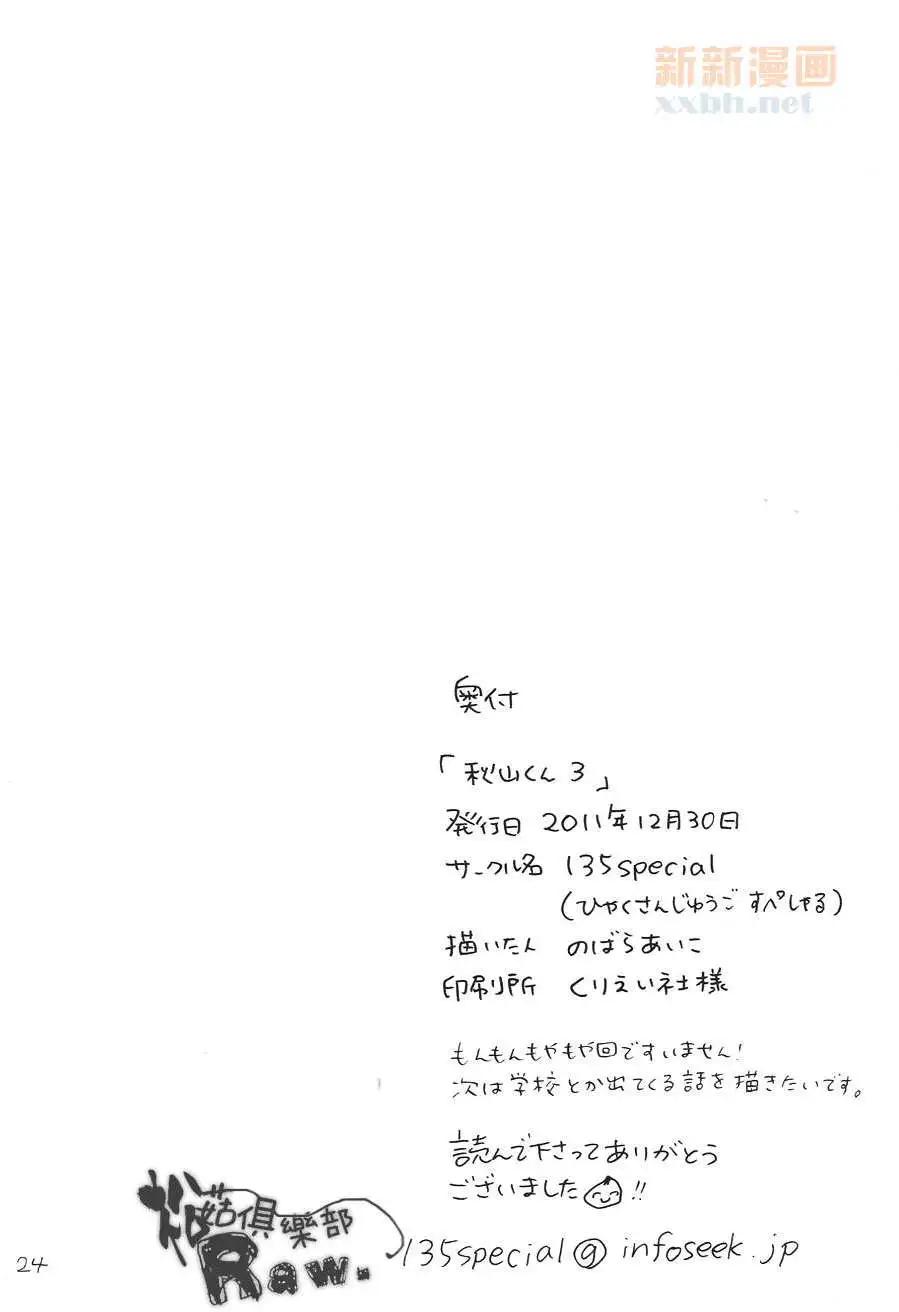 新新漫画
xxbh.net
奥付
「秋山くん 3」
発行日 2011年12月30日
サークル名 135special
(ひゃくさんじゅうご すぺしゃる)
描いたん のばらあいこ
印刷所 くりえい社様
もんもんもやもや回ですいません!
次は学校とか出てくる話を描きたいです。
読んで下さってありがとう
ございました!!
菇俱樂部
Raw.
135special@infoseek.jp
24